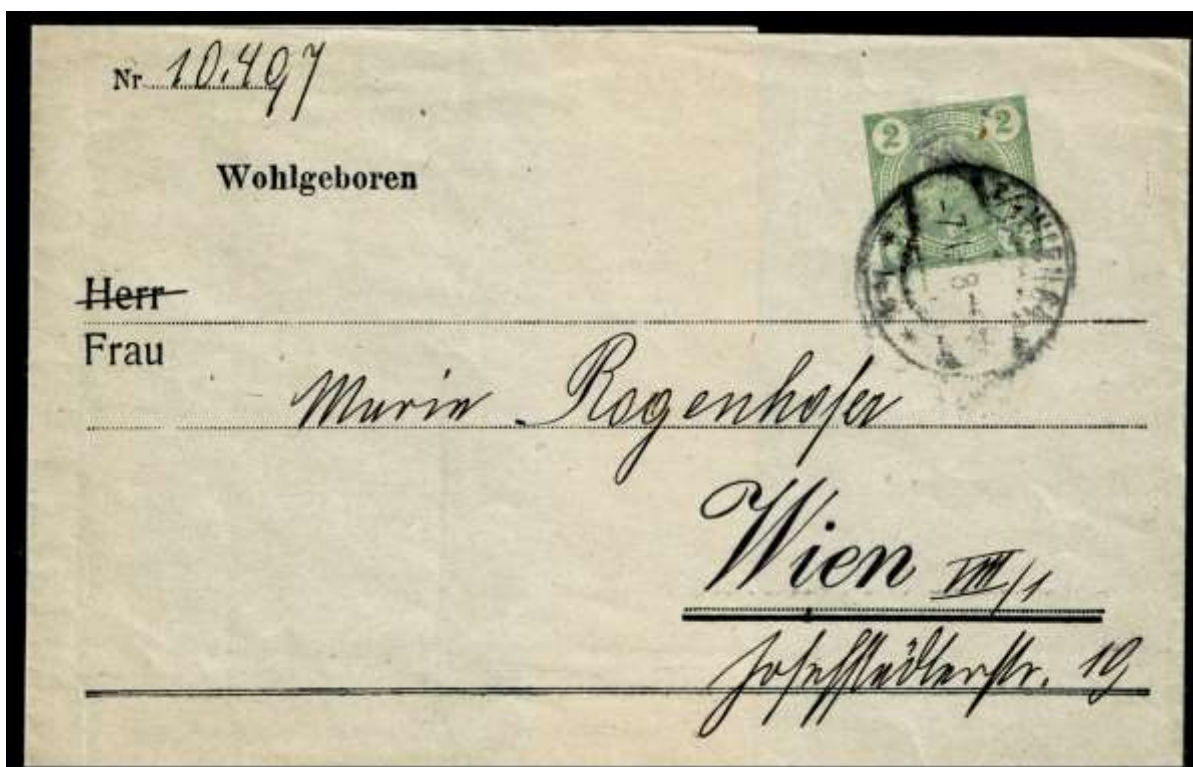 Nr 10.497
2 2
Wohlgeboren
Herr
Frau
Marie Rogenhofer
Wien VIII/1
Josefstädterstr. 19